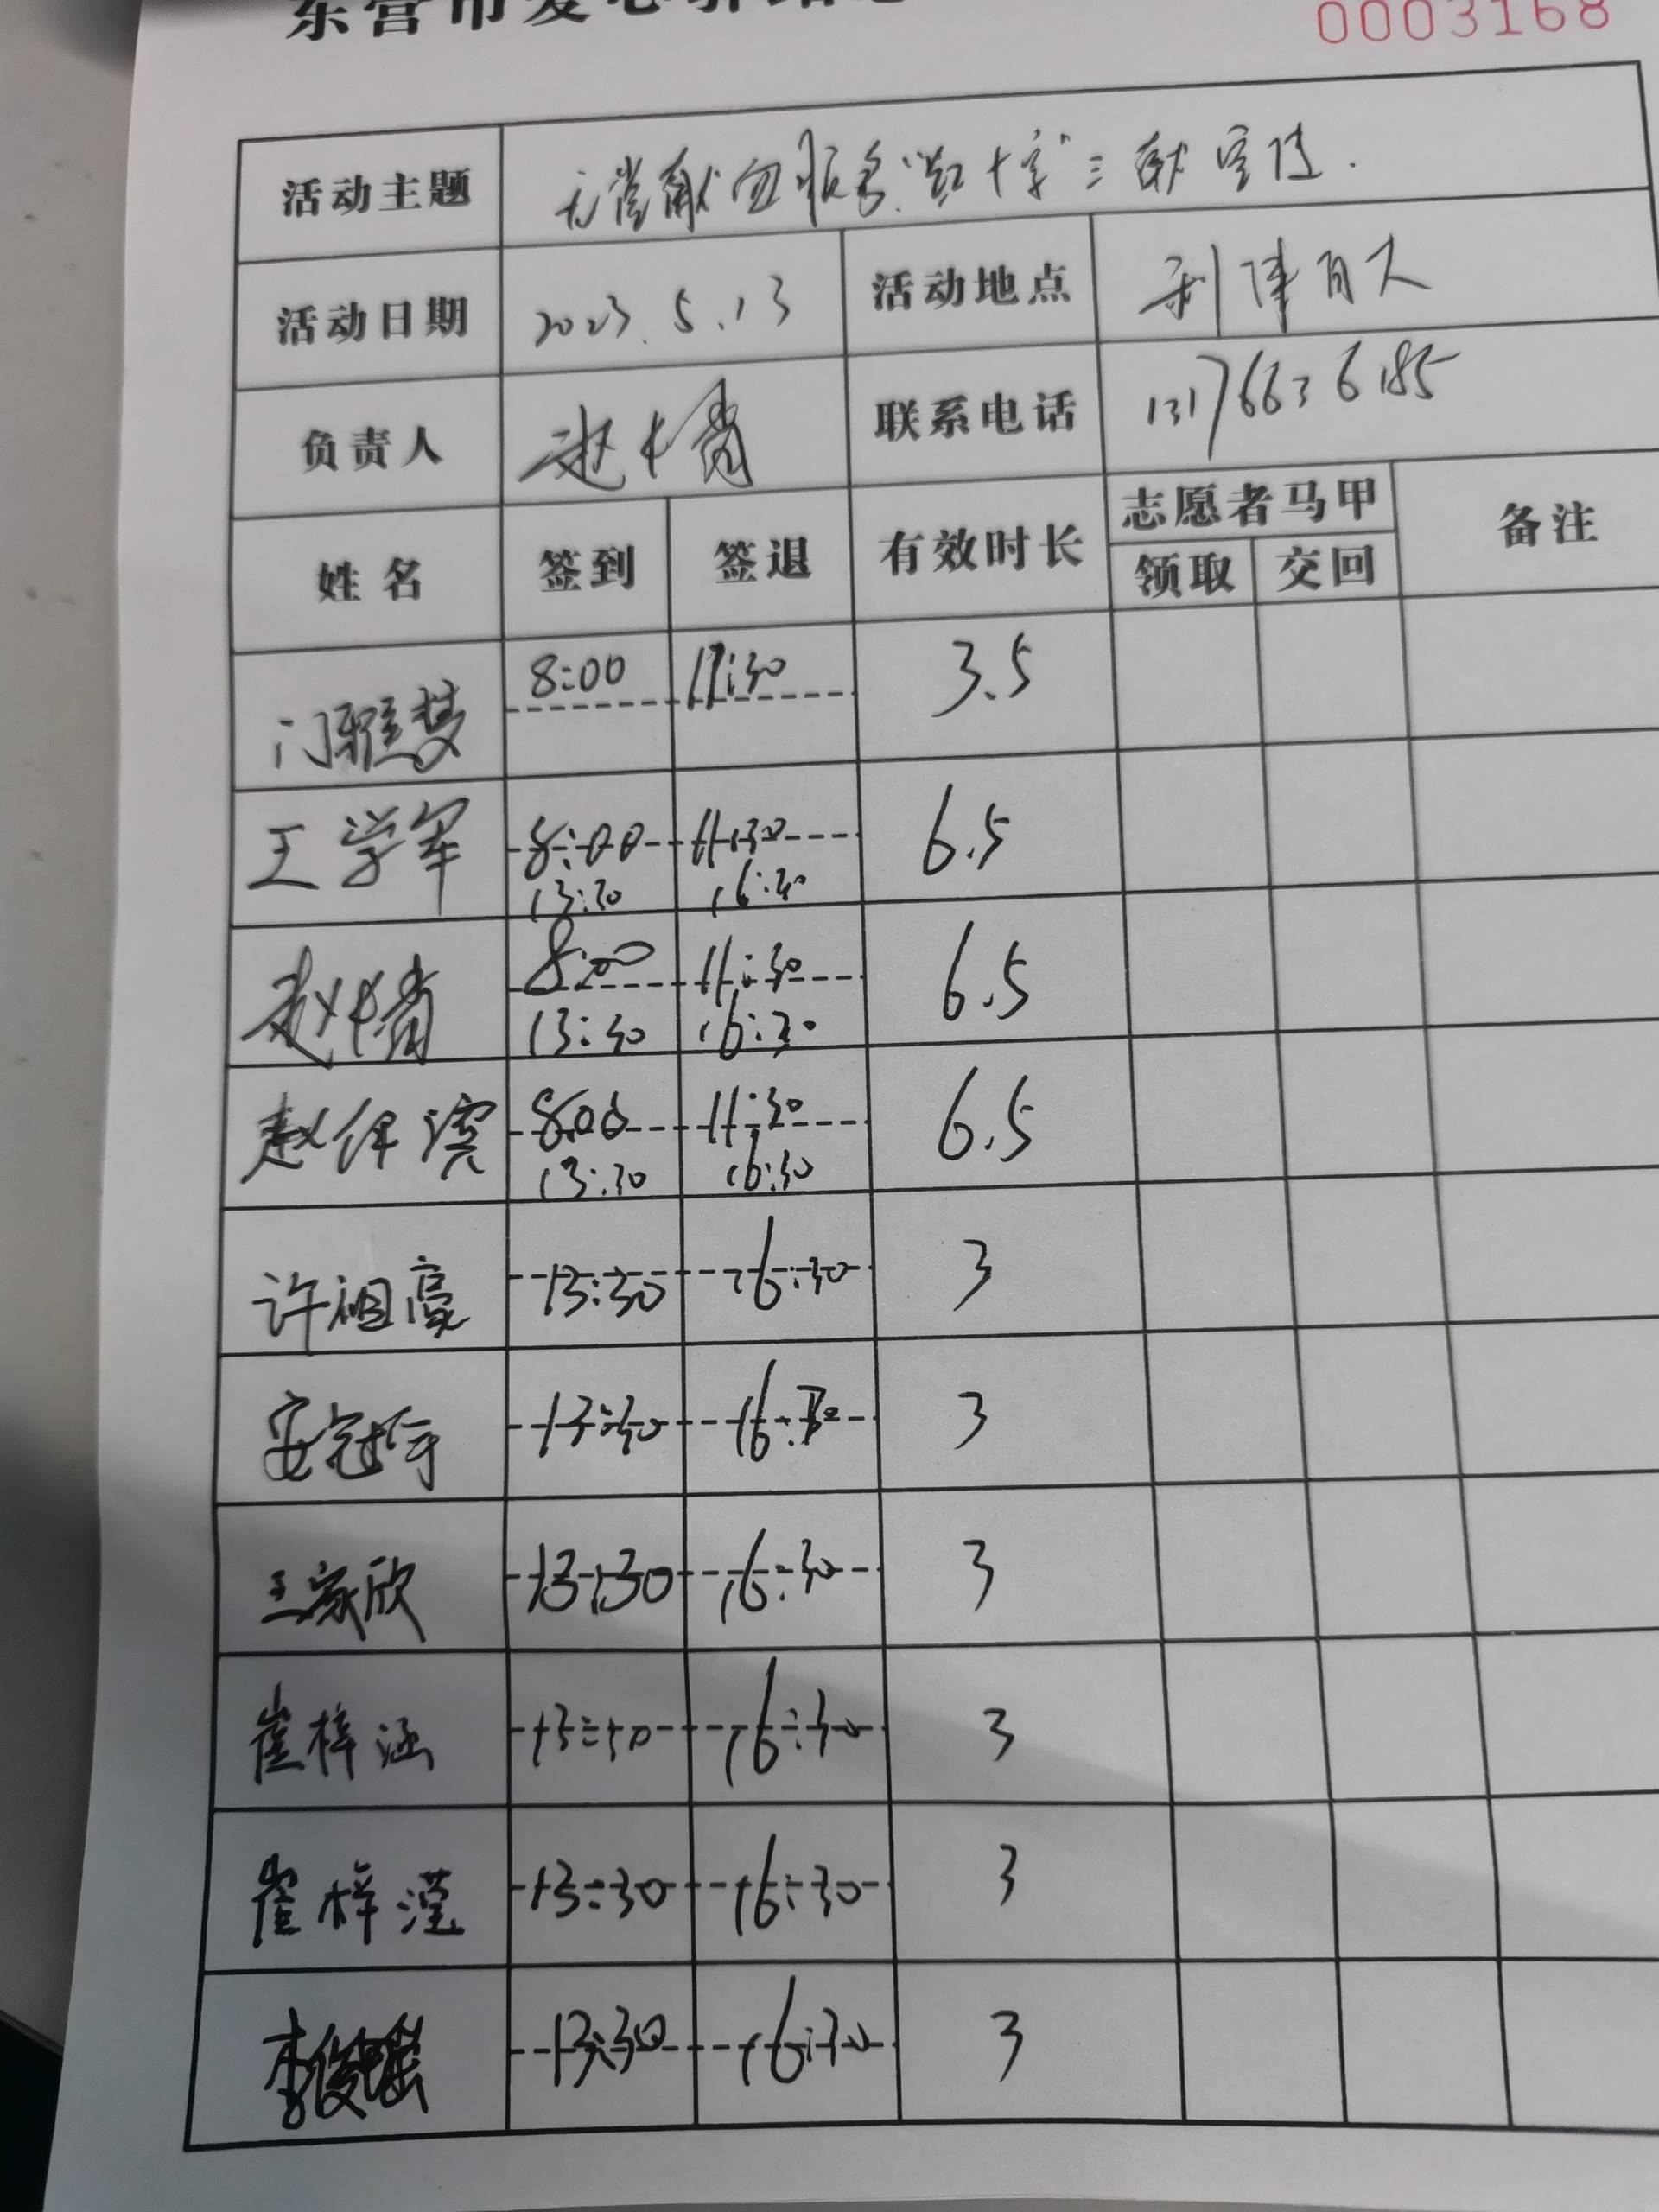 0003168
活动主题 无偿献血服务.“红十字”三献宣传.
活动日期 2023.5.13 活动地点 利津百大
负责人 联系电话 13176636185
姓名 签到 签退 有效时长 志愿者马甲 备注
领取 交回
门雅梦 8:00 11:30 3.5
王学军 8:00 11:30 6.5
13:30 16:30
8:00 11:30 6.5
13:30 16:30
8:00 11:30 6.5
13:30 16:30
许祖豪 13:30 16:30 3
安冠宇 13:30 16:30 3
王家欣 13:30 16:30 3
崔梓涵 13:30 16:30 3
崔梓滢 13:30 16:30 3
李俊瑶 13:30 16:30 3